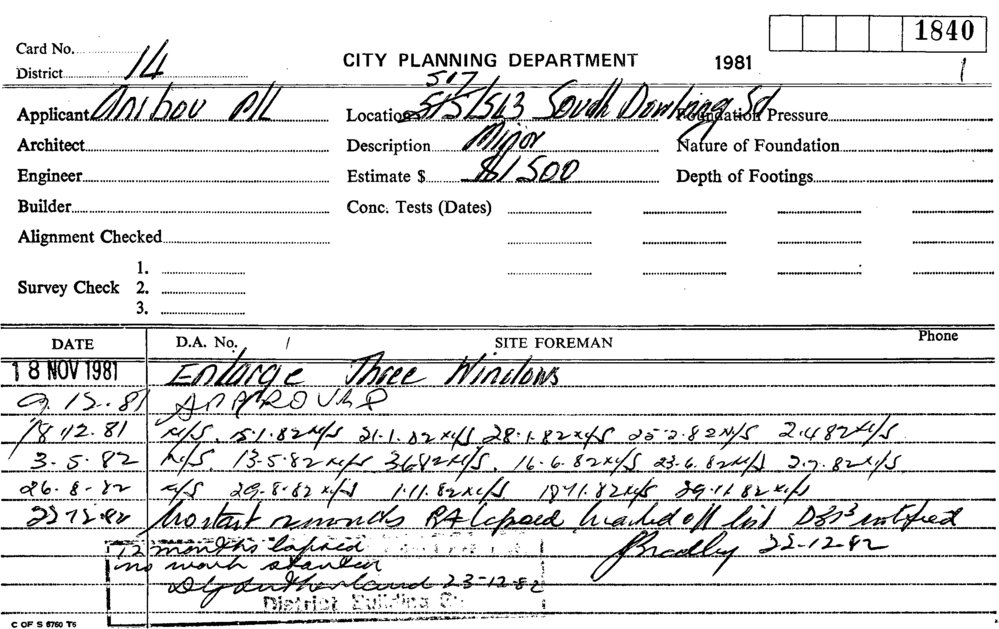 1840
Card No.
CITY PLANNING DEPARTMENT 1981 1
District 14
517
Applicant Anibou P/L Location 515/543 South Dowling St Foundation Pressure
Architect Description Minor Nature of Foundation
Engineer Estimate $ $1500 Depth of Footings
Builder Conc. Tests (Dates)
Alignment Checked
1.
Survey Check 2.
3.
DATE D.A. No. / SITE FOREMAN Phone
18 NOV 1981 Enlarge Three Windows
9.12.81 APPROVED
18.12.81 N/S. 15.1.82 N/S 21.1.82 N/S 28.1.82 N/S 25.2.82 N/S 2.4.82 N/S
3.5.82 N/S. 13.5.82 N/S 3.6.82 N/S. 16.6.82 N/S 23.6.82 N/S 2.7.82 N/S
26.8.82 N/S 29.8.82 N/S 1.11.82 N/S 18.11.82 N/S 29.11.82 N/S
22.12.82 No start 12 months BA lapsed marked off list notified
12 months lapsed Bradley 22-12-82
no work started
Sutherland 23-12-82
District Building
C OF S 6760 T6